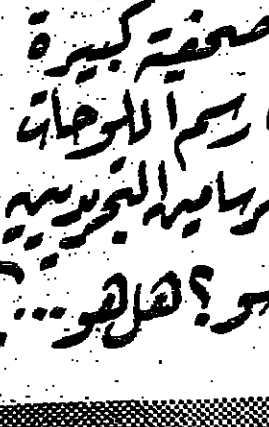 صحفية كبيرة
رسم اللوحات
رسامين التجريديين
هو؟ هل هو...